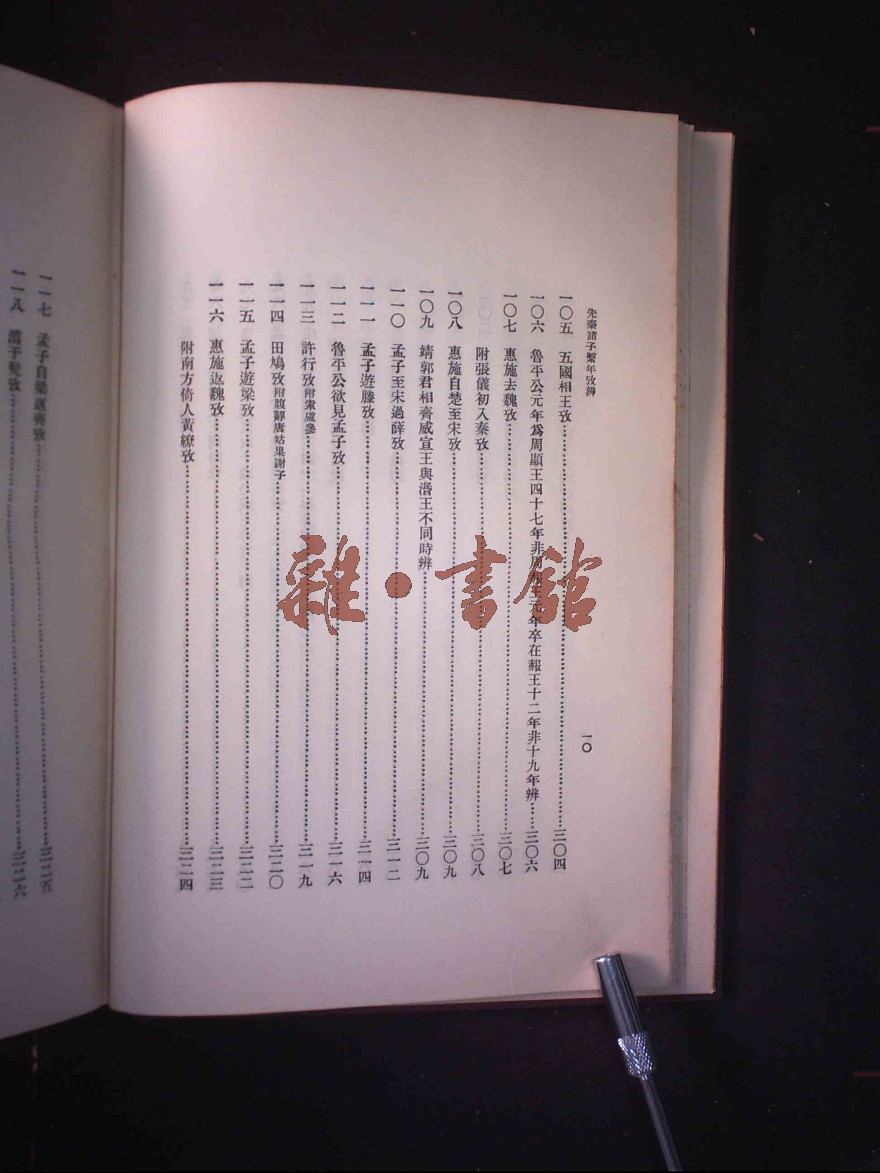 先秦諸子繫年攷辨
一〇
一〇五 五國相王攷……三〇四
一〇六 魯平公元年爲周顯王四十七年非周赧王元年卒在赧王十二年非十九年辨……三〇六
一〇七 惠施去魏攷……三〇七
附張儀初入秦攷……三〇八
一〇八 惠施自楚至宋攷……三〇九
一〇九 靖郭君相齊威宣王與湣王不同時辨……三〇九
一一〇 孟子至宋過薛攷……三一二
一一一 孟子遊滕攷……三一四
一一二 魯平公欲見孟子攷……三一六
一一三 許行攷附索盧參……三一九
一一四 田鳩攷附腹䵍唐姑果謝子……三二〇
一一五 孟子遊梁攷……三二二
一一六 惠施返魏攷……三二三
附南方倚人黃繚攷……三二四
一一七 孟子自梁返齊攷……三二五
一一八 淳于髡攷……三二六
雜·書館